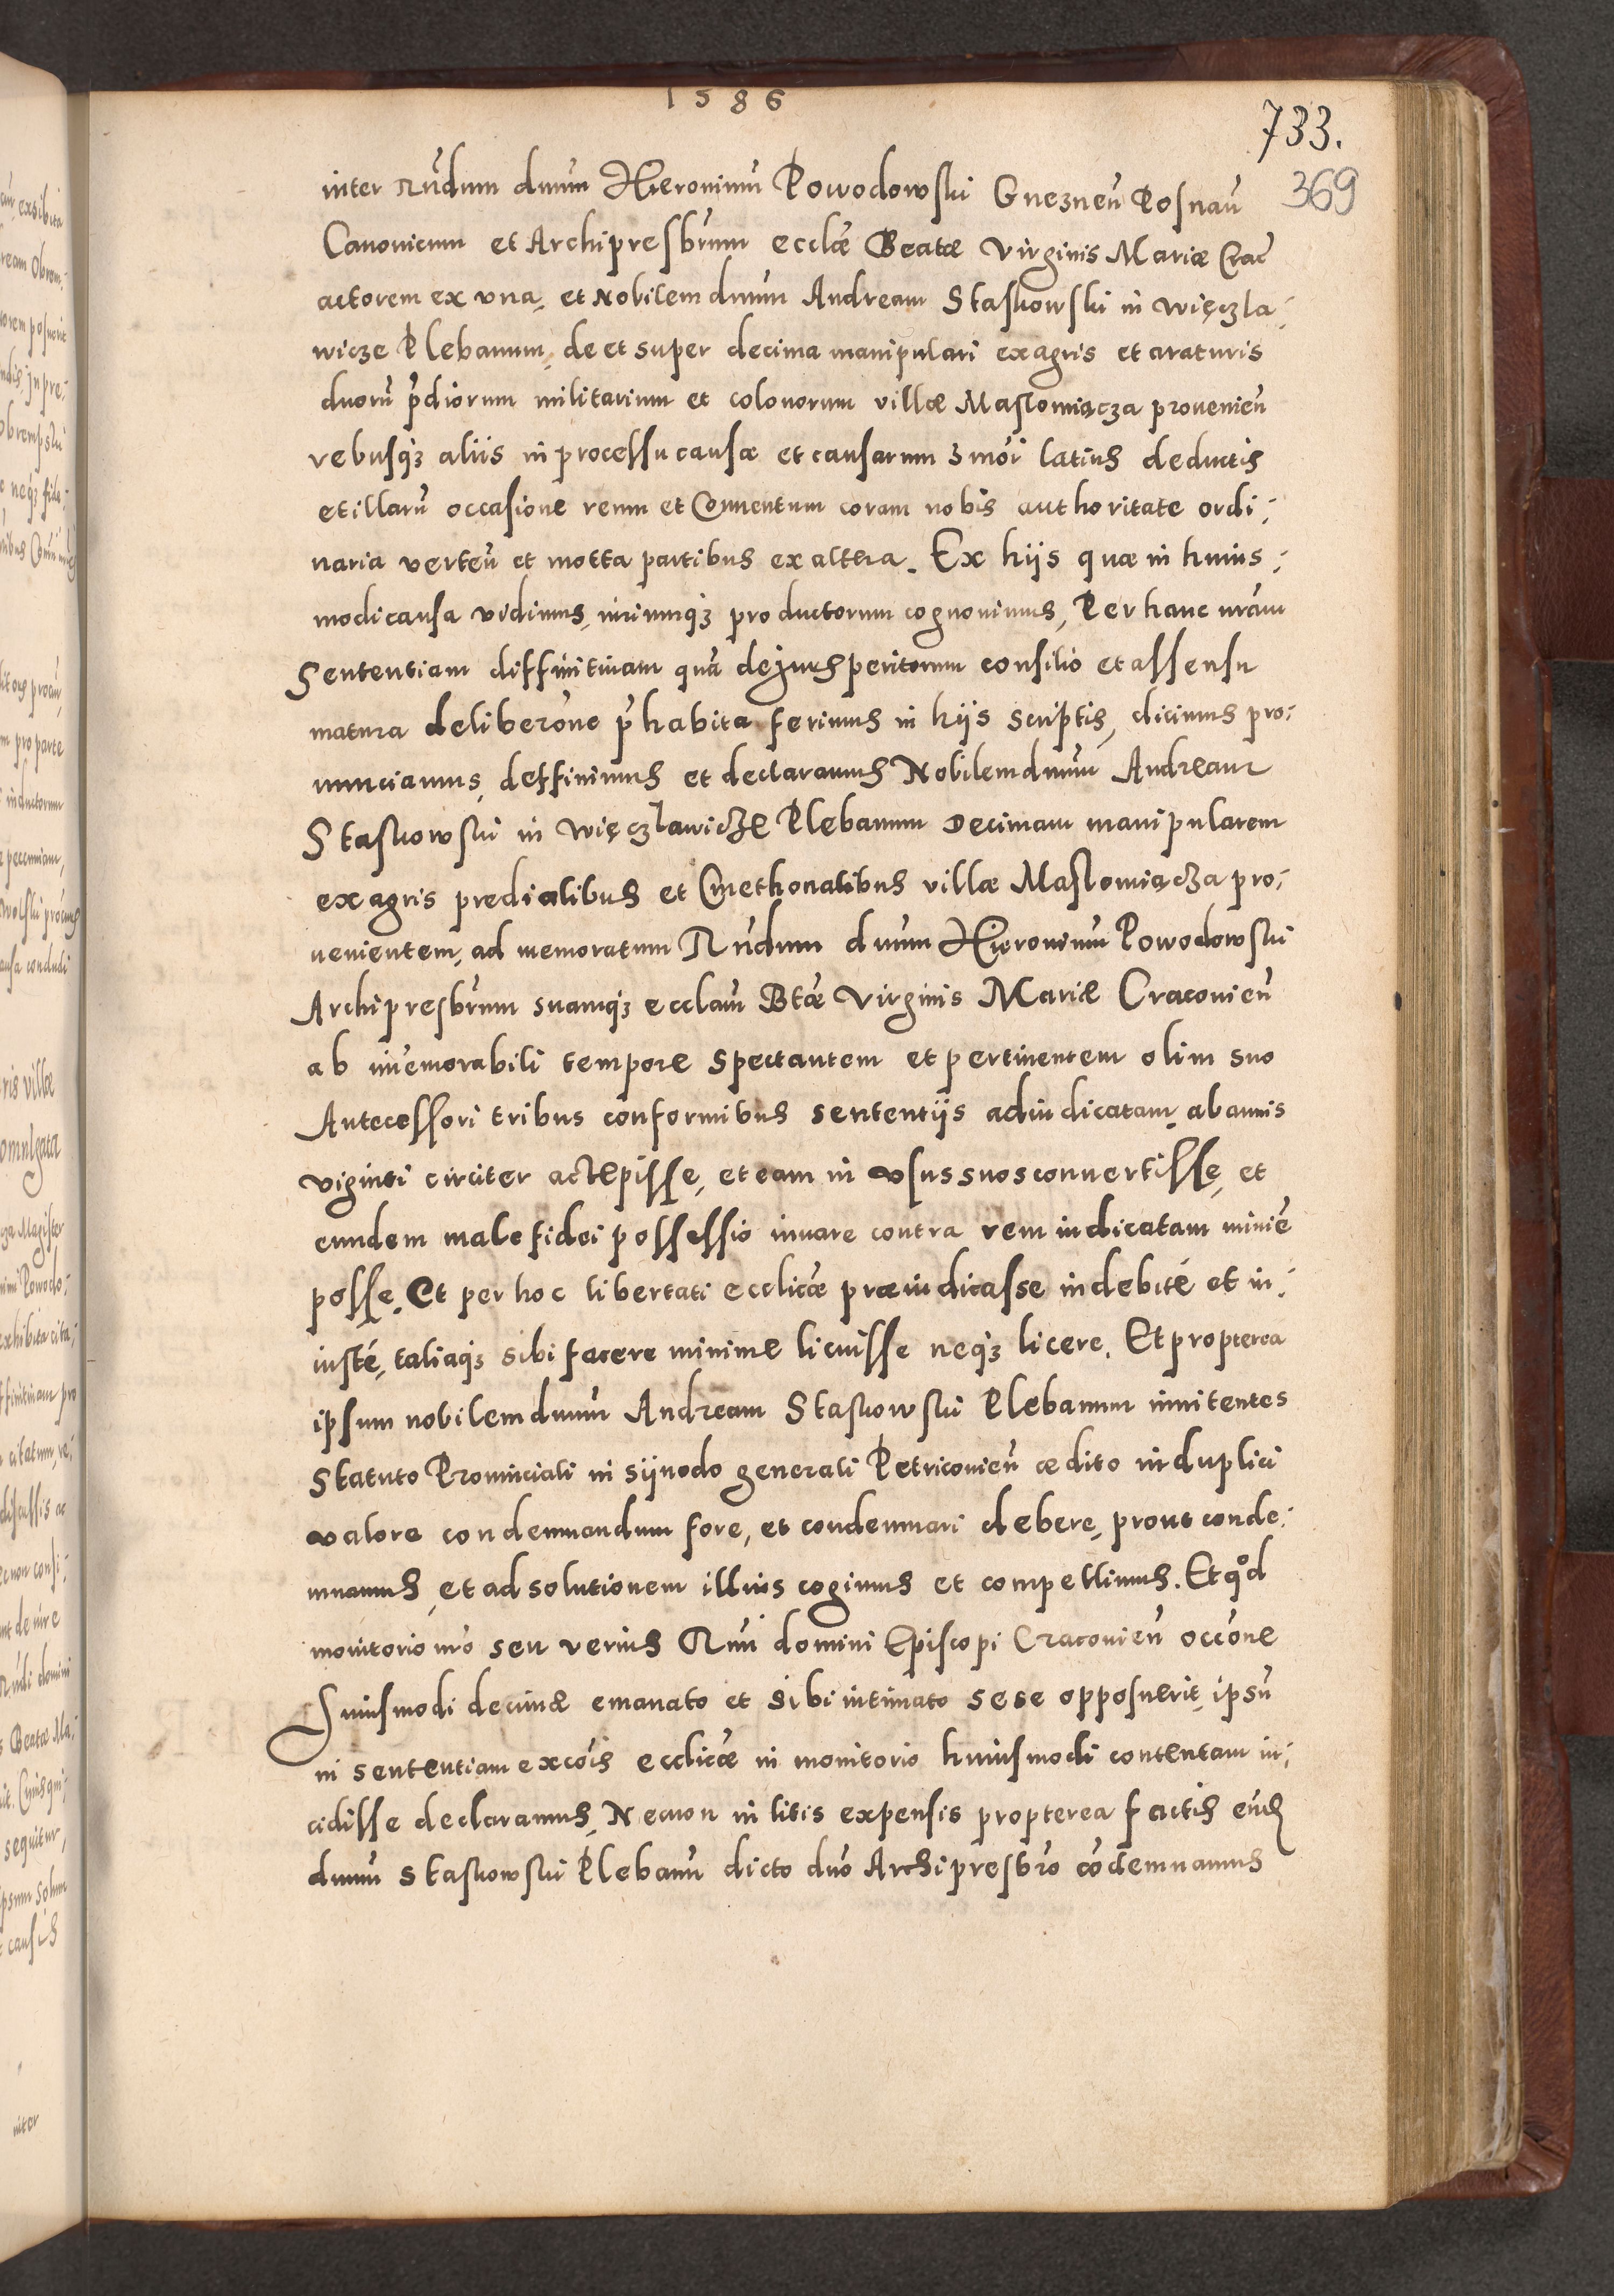 1586
733.
369
inter Rńdum dnum Hieronimũ Powodowski Gneznen̄ Posnan̄
Canonicum et Archipresbr̃um eccl̃æ Beatæ Virginis Mariæ Crac̃
actorem ex vna, et Nobilem dnum Andream Staskowski in Więczla:
wicze Plebanum, de et super decima manipulari ex agris et araturis
duorũ p̃diorum militarium et colonorum villæ Maslomiącza prouenien̄
rebusqȝ aliis in processu causæ et causarum ȝmõi latius deductis
et illarũ occasione reum et Conuentum coram nobis authoritate ordi:
naria verten̄ et motta partibus ex altera. Ex hijs quæ in huius:
modi causa vidimus, iuriumqȝ productorum cognouimus, Per hanc nrãm
Sententiam diffinitiuam quã de jurisperitorum consilio et assensu
matura deliberõne p̃habita ferimus in hijs scriptis, dicimus pro:
nunciamus, deffinimus et declaramus Nobilem dnum Andream
Staskowski in Więczlawicze Plebanum Decimam manipularem
ex agris predialibus et Cmethonalibus villæ Maslomiącza pro:
uenientem, ad memoratum Rńdum dnum Hieronimũ Powodowski
Archipresbr̃um suamqȝ eccl̃am Bt̃æ Virginis Mariæ Cracouien̄
ab im̃emorabili tempore spectantem et pertinentem olim suo
Antecessori tribus conformibus sententijs adiudicatam, ab annis
viginti circiter accepisse, et eam in vsus suos conuertisse, et
eundem malefidei possessio iuuare contra rem iudicatam minimẽ
posse. Et per hoc libertati eccl̃icæ præiudicasse indebitè et in:
iustè, taliaqȝ sibi facere minime licuisse neqȝ licere. Et propterea
ipsum nobilem dnum Andream Staskowski Plebanum innitentes
Statuto Prouinciali in sijnodo generali Petricouien̄ ædito in duplici
valore condemnandum fore, et condemnari debere, prout conde:
mnamus, et ad solutionem illius cogimus et compellimus. Et qd̊
monitorio nrõ seu verius Rmi domini Episcopi Cracouien̄ occõne
Huiusmodi decimæ emanato et sibi intimato sese opposuerit, ipsũ
in sententiam excõis eccl̃icæ in monitorio huiusmodi contentam in:
cidisse declaramus, Necnon in litis expensis propterea factis eũd
dnum Staskowski Plebanũ dicto dnõ Archipresbr̃o cõdemnamus